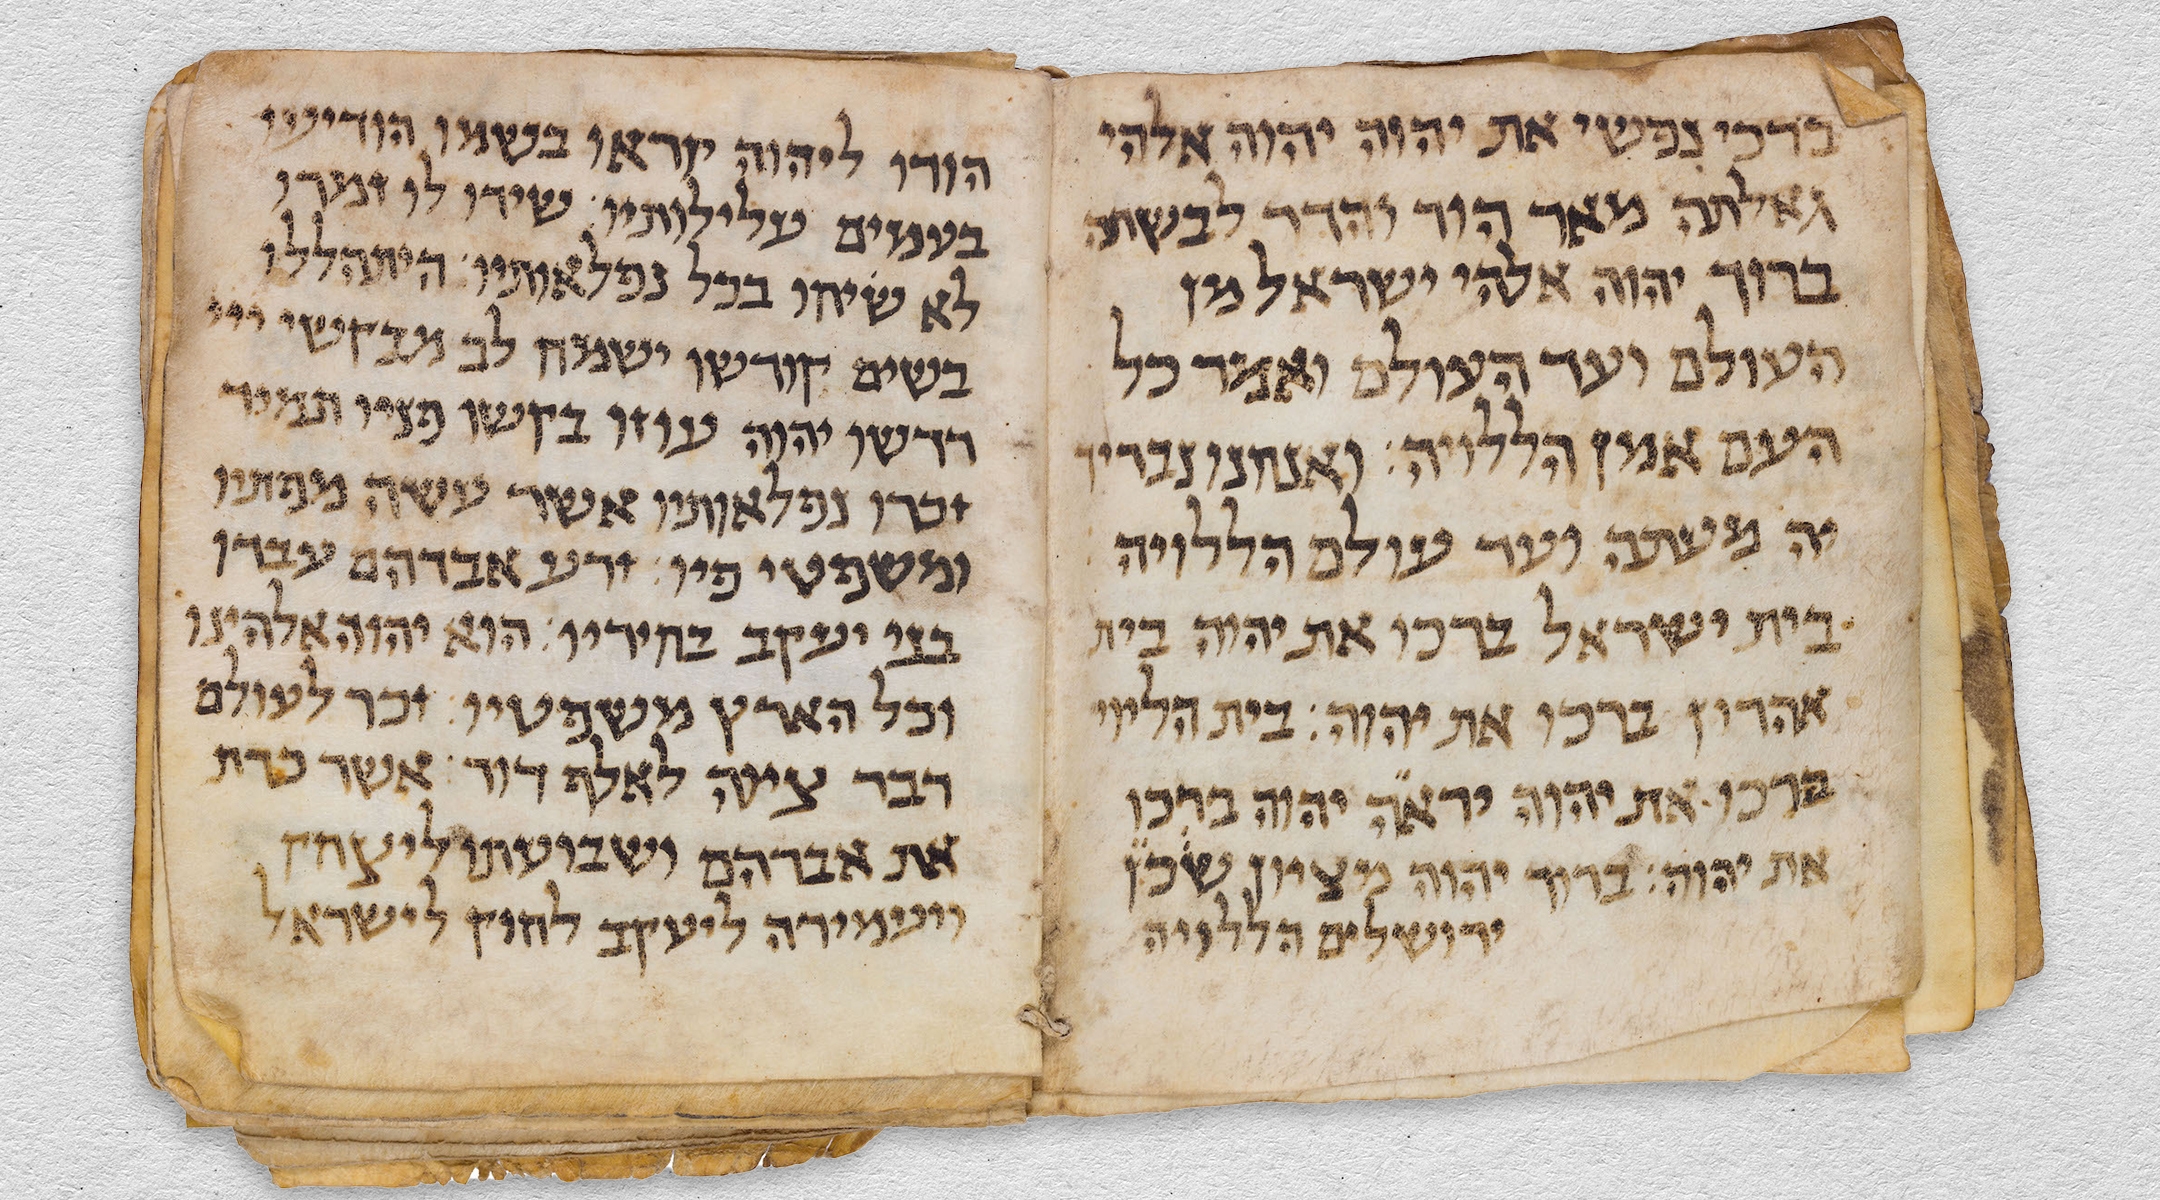 ברכי נפשי את יהוה יהוה אלהי
גאלתה מאד הוד והדר לבשתה
ברוך יהוה אלהי ישראל מן
העולם ועד העולם ואמר כל
העם אמן הללויה׃ ואנחנו נבריך
יה מעתה ועד עולם הללויה
בית ישראל ברכו את יהוה בית
אהרון ברכו את יהוה׃ בית הליוי
ברכו את יהוה יראה יהוה ברכו
את יהוה׃ ברוך יהוה מציון שכן
ירושלים הללויה
הודו ליהוה קראו בשמו הודיעו
בעמים עלילותיו׃ שירו לו זמרו
לא שיחו בכל נפלאותיו׃ היתהללו
בשים קודשו ישמח לב מבקשי ייי
דרשו יהוה עוזו בקשו פניו תמיד
זכרו נפלאותיו אשר עשה מפתיו
ומשפטי פיו׃ זרע אברהם עבדו
בני יעקב בחיריו׃ הוא יהוה אלהינו
וכל הארץ משפטיו׃ זכר לעולם
דבר ציוה לאלף דור׃ אשר כרת
את אברהם ושבועתו ליצחק
ויעמידה ליעקב לחוק לישראל